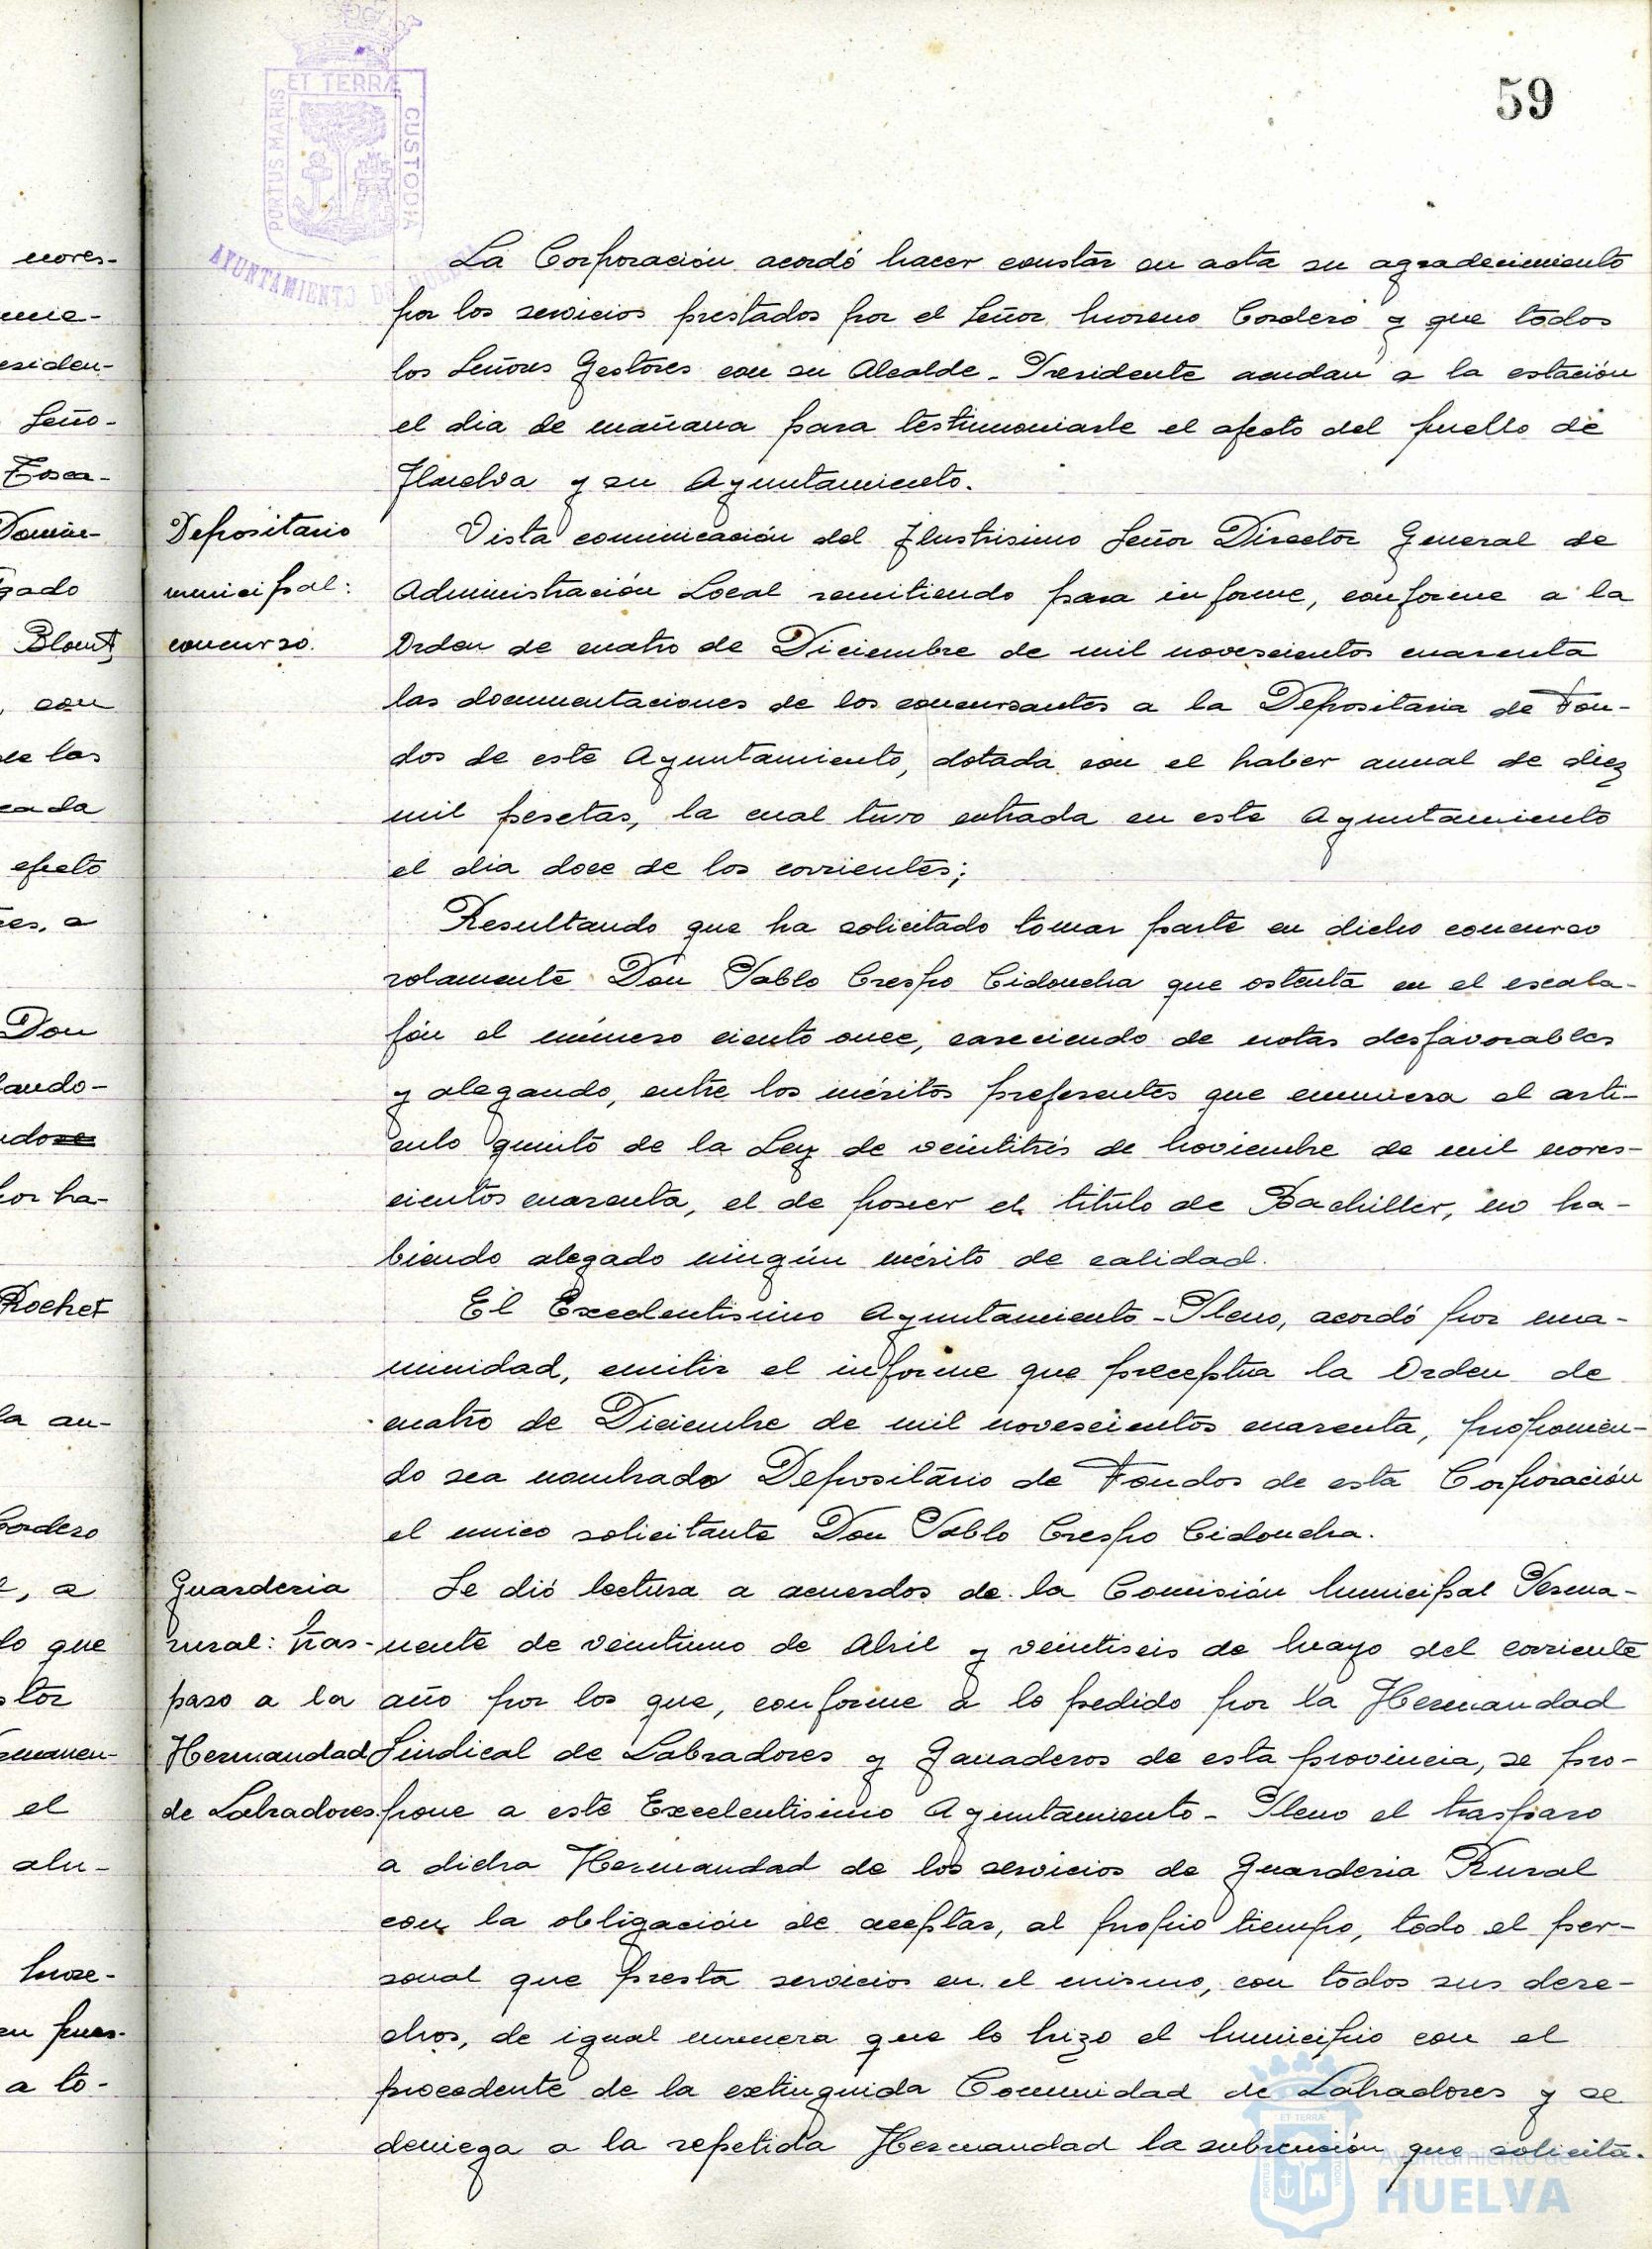 59
PORTUS MARIS
ET TERRÆ
CUSTODIA
AYUNTAMIENTO DE
La Corporación acordó hacer constar en acta su agradecimiento
por los servicios prestados por el Señor Moreno Cordero y que todos
los Señores Gestores con su Alcalde-Presidente acudan a la estación
el dia de mañana para testimoniarle el afecto del pueblo de
Huelva y su Ayuntamiento.
Depositario
municipal:
concurso.
Vista comunicación del Ilustrisimo Señor Director General de
Administración Local remitiendo para informe, conforme a la
Orden de cuatro de Diciembre de mil novescientos cuarenta
las documentaciones de los concursantes a la Depositaria de Fon-
dos de este Ayuntamiento, dotada con el haber anual de diez
mil pesetas, la cual tuvo entrada en este Ayuntamiento
el dia doce de los corrientes;
Resultando que ha solicitado tomar parte en dicho concurso
solamente Don Pablo Crespo Cidoncha que ostenta en el escala-
fón el número ciento once, careciendo de notas desfavorables
y alegando, entre los méritos preferentes que enumera el arti-
culo quinto de la Ley de veintitrés de Noviembre de mil noves-
cientos cuarenta, el de poseer el titulo de Bachiller, no ha-
biendo alegado ningún mérito de calidad.
El Excelentisimo Ayuntamiento-Pleno, acordó por una-
nimidad, emitir el informe que preceptua la Orden de
cuatro de Diciembre de mil novescientos cuarenta, proponien-
do sea nombrado Depositario de Fondos de esta Corporación
el unico solicitante Don Pablo Crespo Cidoncha.
Guarderia
rural: tras-
paso a la
Hermandad
de Labradores.
Se dió lectura a acuerdos de la Comisión Municipal Perma-
nente de veintiuno de Abril y veintiseis de Mayo del corriente
año por los que, conforme a lo pedido por la Hermandad
Sindical de Labradores y Ganaderos de esta provincia, se pro-
pone a este Excelentisimo Ayuntamiento-Pleno el traspaso
a dicha Hermandad de los servicios de Guarderia Rural
con la obligación de aceptar, al propio tiempo, todo el per-
sonal que presta servicios en el mismo, con todos sus dere-
chos, de igual manera que lo hizo el Municipio con el
procedente de la extinguida Comunidad de Labradores y se
deniega a la repetida Hermandad la subvención que solicita.
Ayuntamiento de
HUELVA